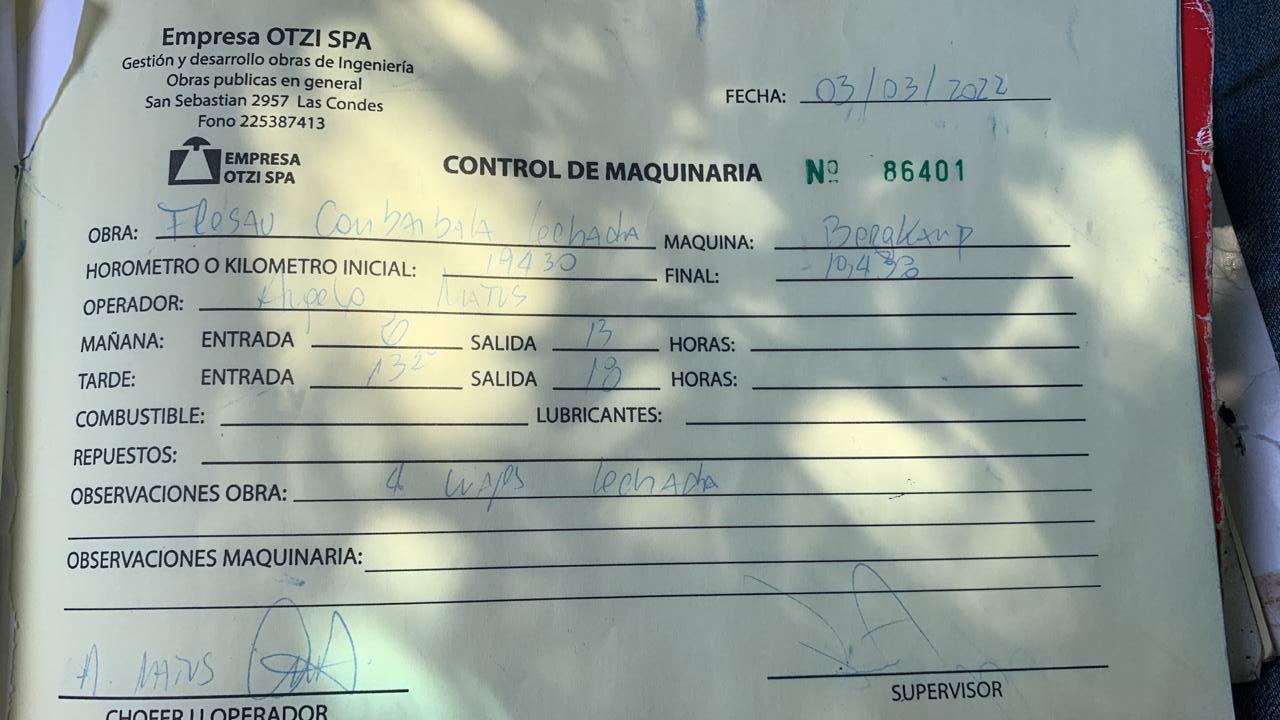 Empresa OTZI SPA
Gestión y desarrollo obras de Ingeniería
Obras publicas en general
San Sebastian 2957 Las Condes
Fono 225387413
FECHA: 03/03/2022
EMPRESA
OTZI SPA
CONTROL DE MAQUINARIA Nº 86401
OBRA: Combarbala lechada MAQUINA: Bergkamp
HOROMETRO O KILOMETRO INICIAL: 19430 FINAL:
OPERADOR: Angelo MATUS
MAÑANA: ENTRADA SALIDA 13 HORAS:
TARDE: ENTRADA 13 SALIDA 18 HORAS:
COMBUSTIBLE: LUBRICANTES:
REPUESTOS:
OBSERVACIONES OBRA: 4 viajes lechada
OBSERVACIONES MAQUINARIA:
A. MATUS
CHOFER U OPERADOR
SUPERVISOR